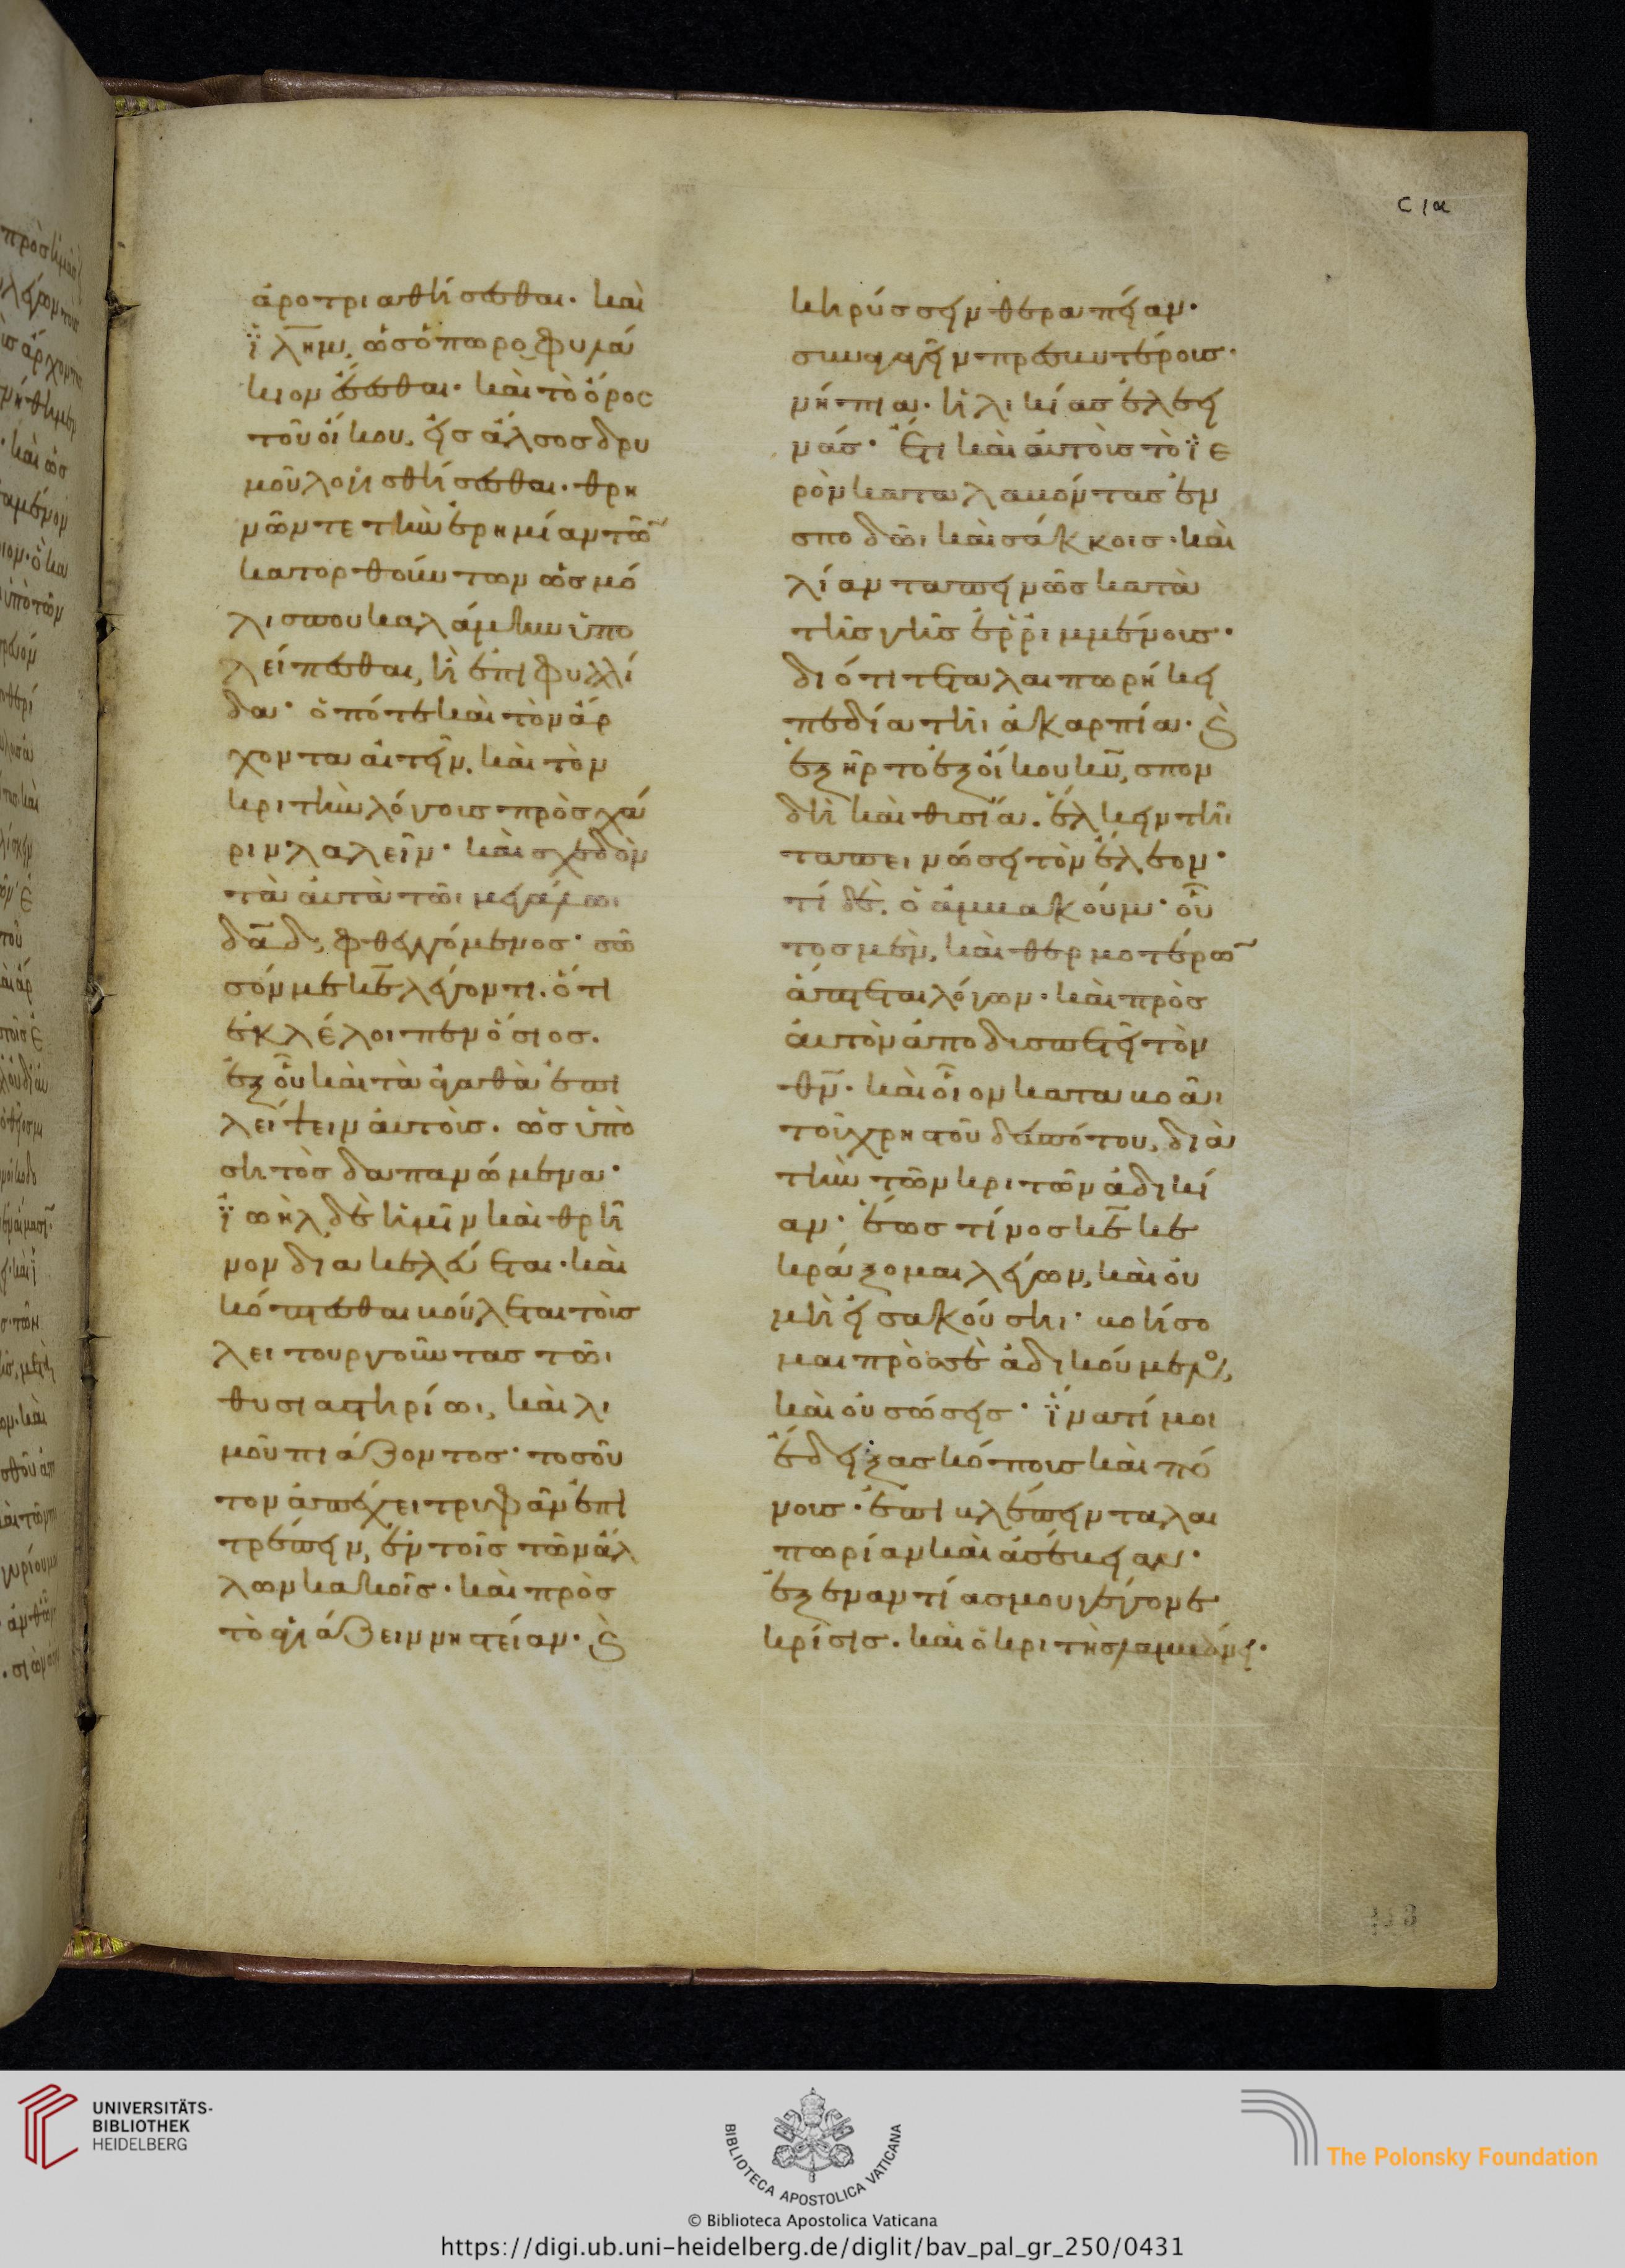 ἀροτριαθήσεσθαι· καὶ
ϊλημ, ὡς ὀπωροφυλά
κιον ἔσεσθαι· καὶ τὸ ὄρος
τοῦ οἴκου, εἰς ἄλσος δρυ
μοῦ λογισθήσεσθαι· θρη
νῶν τε τὴν ἐρημίαν τῶ
κατορθούντων ὡς μό
λις που καλάμην ὑπο
λείπεσθαι, ἢ ἐπιφυλλί
δα· ὁπότε καὶ τὸν ἄρ
χοντα αἰτεῖν, καὶ τὸν
κριτὴν λόγους πρὸς χά
ριν λαλεῖν· καὶ σχεδὸν
τὰ αὐτὰ τῶι μεγάλωι
δαδ, φθεγγόμενος· σῶ
σόν με κε λέγοντι· ὅτι
ἐκλέλοιπεν ὅσιος.
ἐξ οὗ καὶ τὰ ἀγαθὰ ἐπι
λείψειν αὐτοῖς· ὡς ὑπὸ
σητὸς δαπανώμενα·
ϊωὴλ δὲ ἡμῖν καὶ θρῆ
νον διακελεύεται· καὶ
κόπτεσθαι βούλεται τοὺς
λειτουργοῦντας τῶι
θυσιαστηρίωι, καὶ λι
μοῦ πιάζοντος· τοσοῦ
τον ἀπέχει τρυφᾶν ἐπι
τρέπειν, ἐν τοῖς τῶν ἄλ
λων κακοῖς· καὶ πρὸς
τὸ ἁγιάζειν νηστείαν· ϗ
κηρύσσειν θεραπείαν·
συναγαγεῖν πρεσβυτέροις·
νήπια· ἡλικίας ἐλεει
νάς· ἔτι καὶ αὐτοὺς τὸ ϊε
ρὸν καταλαβόντας ἐν
σποδῶι καὶ σάκκοις· καὶ
λίαν ταπεινῶς κατὰ
τῆς γῆς ἐρριμμένους·
διότι τεταλαιπωρήκει
πεδία τῆι ἀκαρπία· ϗ
ἐξῆρτο ἐξ οἴκου κυ, σπον
δὴ καὶ θυσία· ἕλκειν τῆι
ταπεινώσει τὸν ἔλεον·
τί δὲ, ὁ ἀμβακούμ· οὗ
τος μὲν, καὶ θερμοτέρω
ἅπτεται λόγων· καὶ πρὸς
αὐτὸν ἀποδυσπετεῖ τὸν
θν· καὶ οἷον καταβοᾶι
τοῦ χρηστοῦ δεσπότου, διὰ
τὴν τῶν κριτῶν ἀδικί
αν· ἕως τίνος κε κε
κράξομαι λέγων, καὶ οὐ
μὴ εἰσακούσηι· βοήσο
μαι πρὸς σὲ ἀδικούμενος,
καὶ οὐ σώσεις· ϊνατί μοι
ἔδειξας κόπους καὶ πό
νους· ἐπιβλέπειν ταλαι
πωρίαν καὶ ἀσέβειαν·
ἐξ ἐναντίας μου γέγονε
κρίσις· καὶ ὁ κριτὴς λαμβάνει·
UNIVERSITÄTS-
BIBLIOTHEK
HEIDELBERG
BIBLIOTECA APOSTOLICA VATICANA
The Polonsky Foundation
© Biblioteca Apostolica Vaticana
https://digi.ub.uni-heidelberg.de/diglit/bav_pal_gr_250/0431